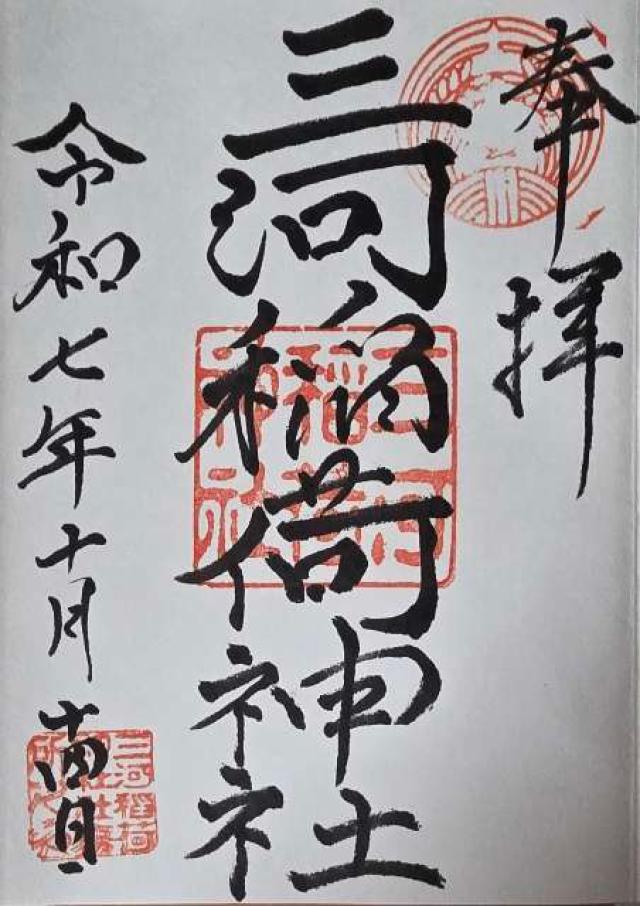 奉拝
三河稲荷神社
三河稲荷神社
令和七年十月十四日
三河稲荷